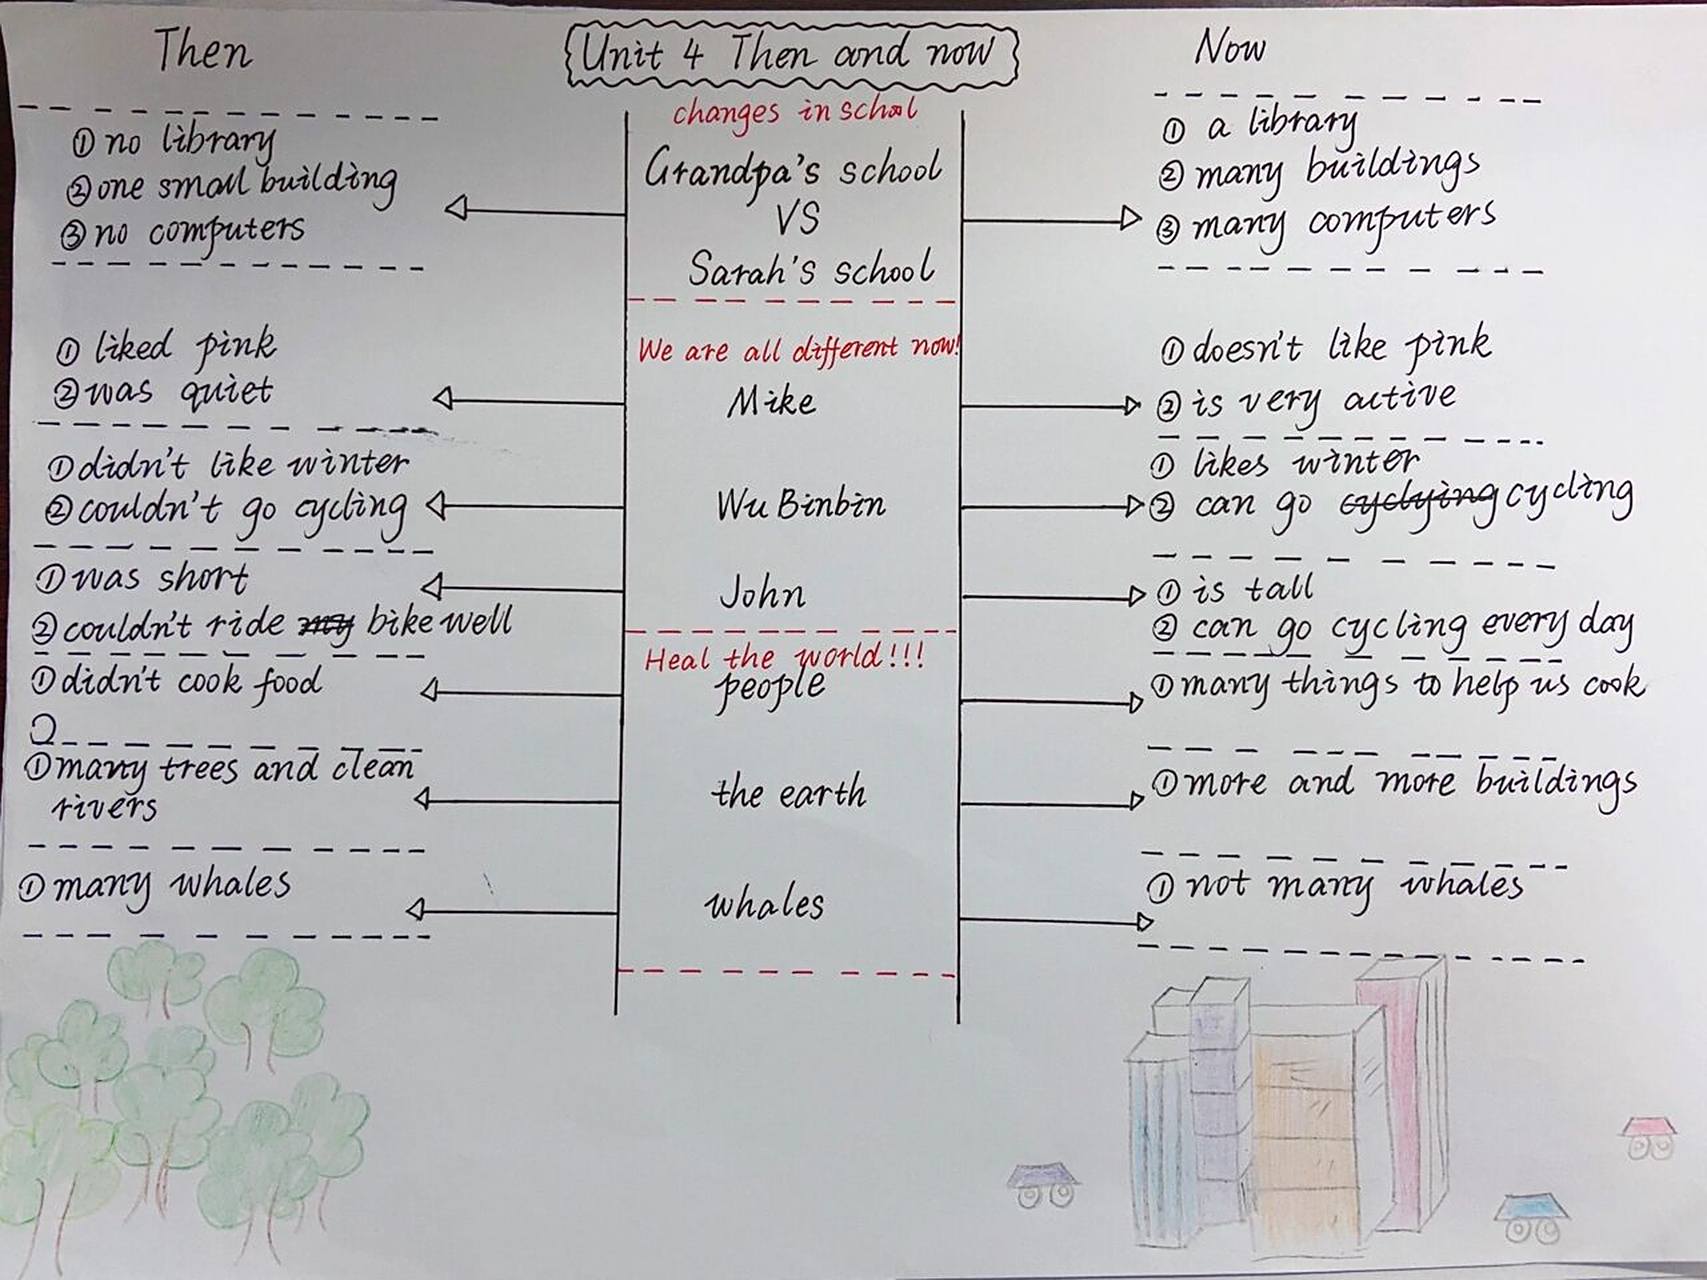 Then
Unit 4 Then and now
Now
changes in school
① no library
② one small building
③ no computers
Grandpa's school
VS
Sarah's school
① a library
② many buildings
③ many computers
We are all different now!
① liked pink
② was quiet
Mike
① doesn't like pink
② is very active
① didn't like winter
② couldn't go cycling
Wu Binbin
① likes winter
② can go cyclying cycling
① was short
② couldn't ride my bike well
John
① is tall
② can go cycling every day
Heal the world!!!
① didn't cook food
people
① many things to help us cook
① many trees and clean
rivers
the earth
① more and more buildings
① many whales
whales
① not many whales